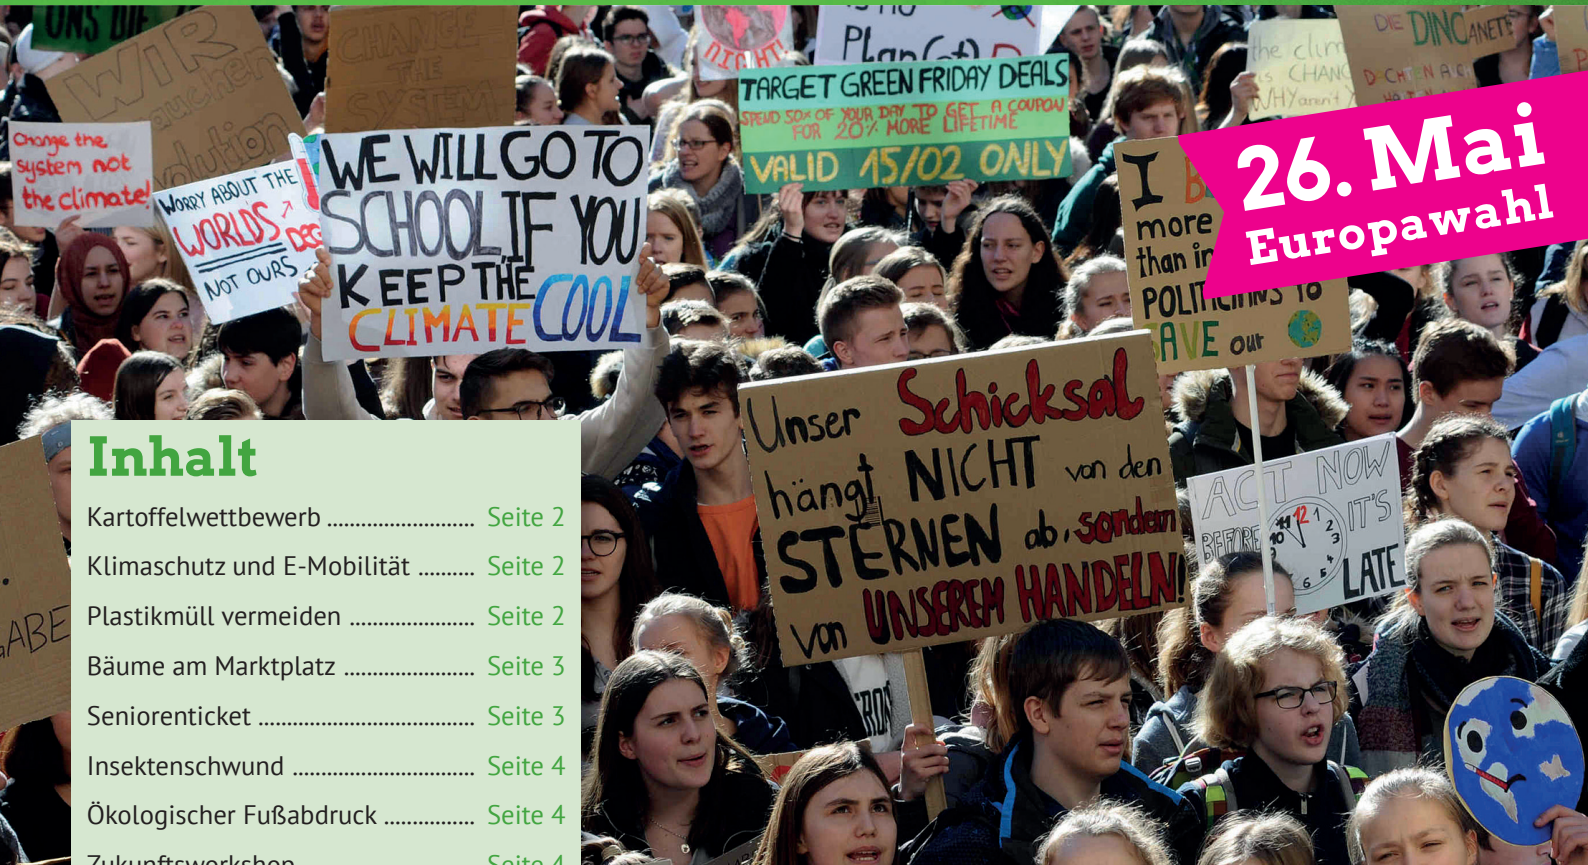 UNS DIE
WIR
CHANGE
THE
SYSTEM
Change the
system not
the climate!
WORRY ABOUT THE
WORLDS
NOT OURS
WE WILL GO TO
SCHOOL IF YOU
KEEP THE
CLIMATE COOL
Plan(et)
TARGET GREEN FRIDAY DEALS
SPEND 50% OF YOUR DAY TO GET A COUPON
FOR 20% MORE LIFETIME
VALID 15/02 ONLY
the clim
is CHANG
WHY aren't Y
DIE DINO
DACHTEN AUCH
26. Mai
Europawahl
I B
more
than in
POLITICIANS TO
SAVE our
Unser Schicksal
hängt NICHT von den
STERNEN ab, sondern
von UNSEREM HANDELN!
ACT NOW
BEFORE IT'S
LATE
12 1 2 3 5 6 10 11
ABE
Inhalt
Kartoffelwettbewerb ...................... Seite 2
Klimaschutz und E-Mobilität .......... Seite 2
Plastikmüll vermeiden ................... Seite 2
Bäume am Marktplatz .................... Seite 3
Seniorenticket ................................. Seite 3
Insektenschwund ............................ Seite 4
Ökologischer Fußabdruck .............. Seite 4
Zukunftsworkshop ........................... Seite 4